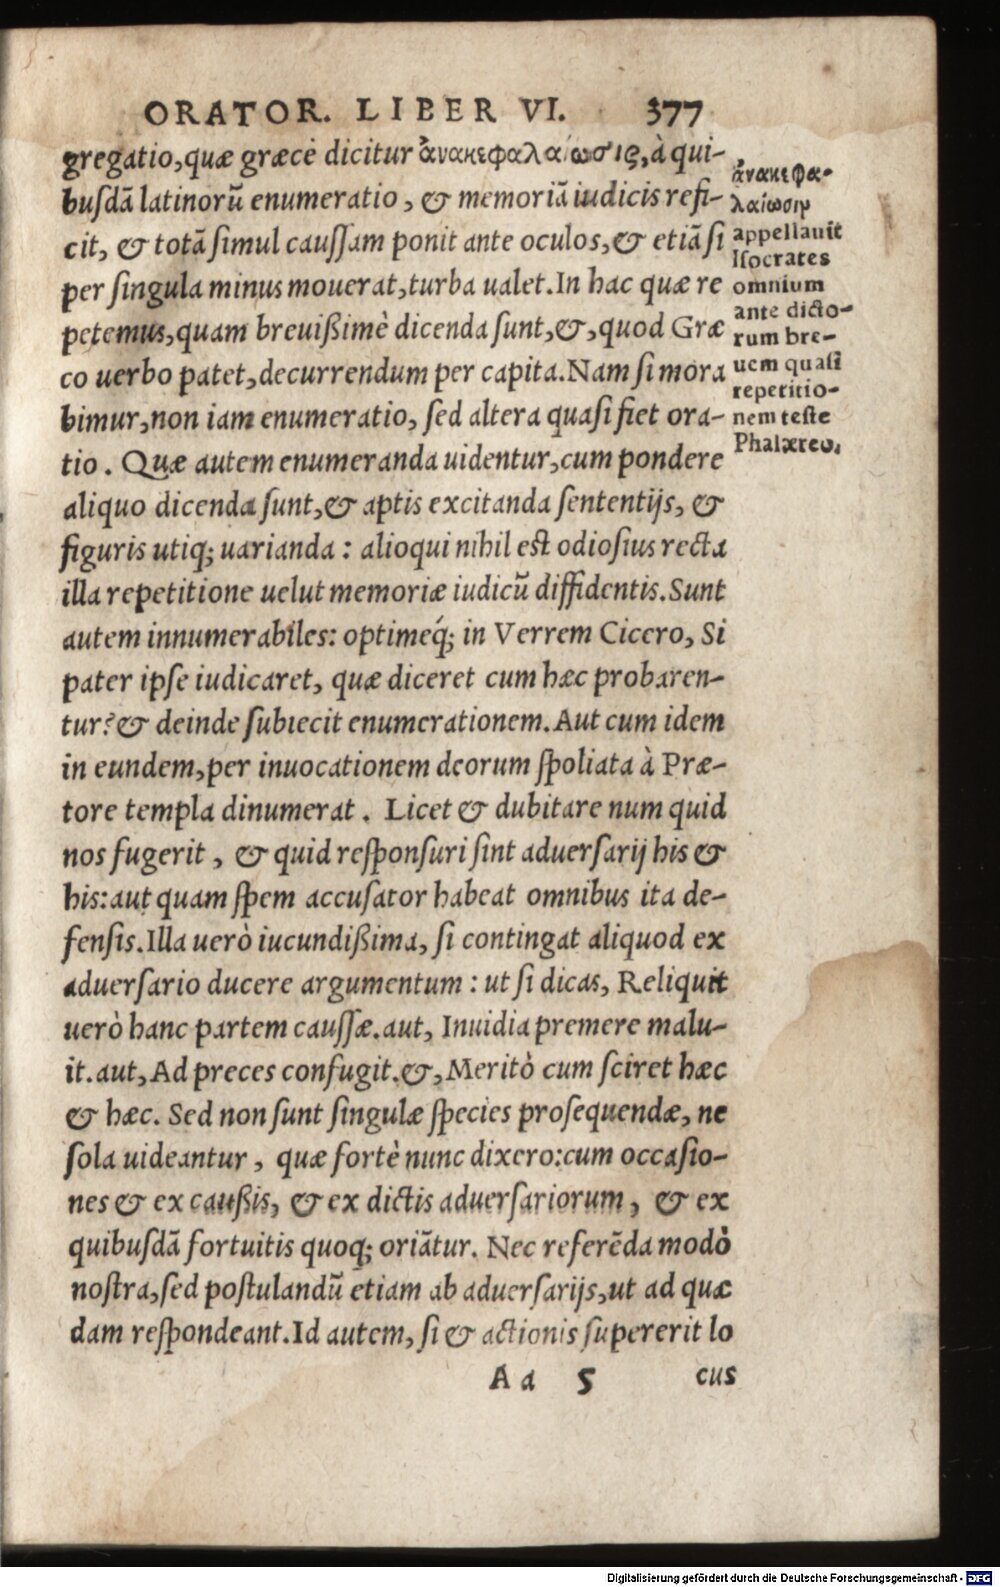 ORATOR. LIBER VI. 377
gregatio, quæ græcè dicitur ἀνακεφαλαίωσις, à qui-
busdã latinorũ enumeratio, & memoriã iudicis refi-
cit, & totã simul caussam ponit ante oculos, & etiã si
per singula minus mouerat, turba ualet. In hac quæ re
petemus, quam breuißimè dicenda sunt, &, quod Græ
co uerbo patet, decurrendum per capita. Nam si mora
bimur, non iam enumeratio, sed altera quasi fiet ora-
tio. Quæ autem enumeranda uidentur, cum pondere
aliquo dicenda sunt, & aptis excitanda sententijs, &
figuris utiq; uarianda: alioqui nihil est odiosius recta
illa repetitione uelut memoriæ iudicũ diffidentis. Sunt
autem innumerabiles: optimeq́; in Verrem Cicero, Si
pater ipse iudicaret, quæ diceret cum hæc probaren-
tur? & deinde subiecit enumerationem. Aut cum idem
in eundem, per inuocationem deorum spoliata à Præ-
tore templa dinumerat. Licet & dubitare num quid
nos fugerit, & quid responsuri sint aduersarij his &
his: aut quam spem accusator habeat omnibus ita de-
fensis. Illa uerò iucundißima, si contingat aliquod ex
aduersario ducere argumentum: ut si dicas, Reliquit
uerò hanc partem caussæ. aut, Inuidia premere malu-
it. aut, Ad preces confugit. &, Meritò cum sciret hæc
& hæc. Sed non sunt singulæ species prosequendæ, ne
sola uideantur, quæ fortè nunc dixero: cum occasio-
nes & ex caußis, & ex dictis aduersariorum, & ex
quibusdã fortuitis quoq; oriãtur. Nec referẽda modò
nostra, sed postulandũ etiam ab aduersarijs, ut ad quæ
dam respondeant. Id autem, si & actionis supererit lo
Aa 5 cus
ἀνακεφα-
λαίωσιν
appellauit
Isocrates
omnium
ante dicto-
rum bre-
uem quasi
repetitio-
nem teste
Phalæreo.
Digitalisierung gefördert durch die Deutsche Forschungsgemeinschaft - DFG